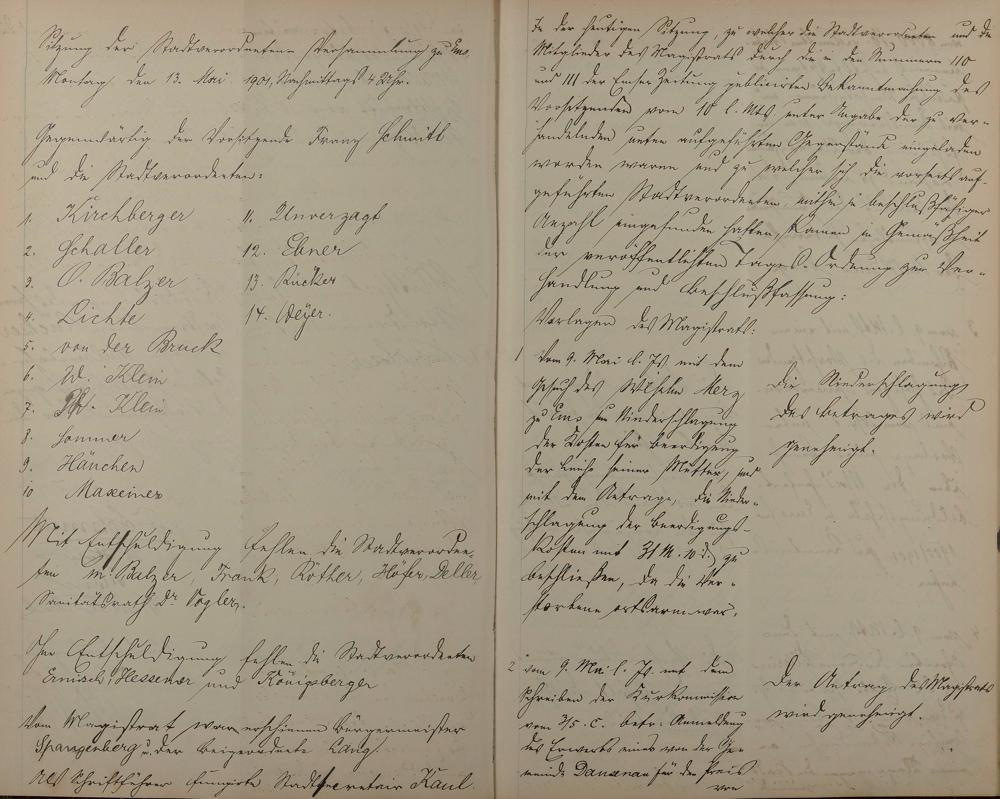 Sitzung der Stadtverordneten-Versammlung zu Ems
Montag, den 13. Mai 1901, Nachmittags 4 Uhr.
Gegenwärtig der Vorsitzende Franz Schmitt
und die Stadtverordneten:
1. Kirchberger
2. Schaller
3. O. Balzer
4. Lichte
5. von der Bruck
6. W. Klein
7. Ph. Klein
8. Sommer
9. Hänchen
10 Maxeiner
11. Unverzagt
12. Ebner
13. Rücker
14. Weyer.
Mit Entschuldigung fehlen die Stadtverordne-
ten M. Balzer, Frank, Röther, Höfer, Deller
Sanitätsrath Dr. Vogler.
Ohne Entschuldigung fehlen die Stadtverordneten
Ernisch, Hessemer und Königsberger
Vom Magistrat war erschienen Bürgermeister
Spangenberg u. der Beigeordnete Lang.
Als Schriftführer fungirte Stadtsecretair Kaul.
In der heutigen Sitzung, zu welcher die Stadtverordneten und die
Mitglieder des Magistrats durch die in den Nummern 110
und 111 der Emser Zeitung publicirten Bekanntmachung des
Vorsitzenden vom 10 l. Mts. unter Angabe der zu ver-
handelnden unten aufgeführten Gegenstände eingeladen
worden waren und zu welcher sich die vorseits auf-
geführten Stadtverordneten, mithin in beschlußfähiger
Anzahl eingefunden hatten, kamen in Gemäßheit
der veröffentlichten Tages-Ordnung zur Ver-
handlung und Beschlußfassung:
Vorlagen des Magistrats:
1 vom 9. Mai l. Js. mit dem
Gesuch des Wilhelm Merz
zu Ems um Niederschlagung
der Kosten für Beerdigung
der Leiche seiner Mutter, und
mit dem Antrage, die Nieder-
schlagung der Beerdigungs-
kosten mit 31 M. 10 d. zu
beschließen, da die Ver-
storbene ortsarm war.
Die Niederschlagung
des Betrages wird
genehmigt.
2 vom 9. Mai l. Js. mit dem
Schreiben der Kurkommission
vom 7/5. c. betr. Anmeldung
des Erwerbs eines von der Ge-
meinde Dausenau für den Preis
von
Der Antrag des Magistrats
wird genehmigt.